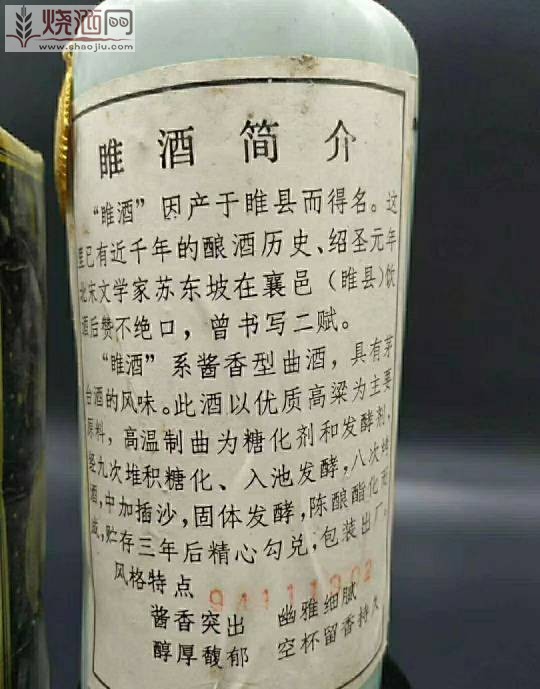 烧酒网
www.shaojiu.com
睢酒简介
“睢酒”因产于睢县而得名。这
里已有近千年的酿酒历史、绍圣元年
北宋文学家苏东坡在襄邑（睢县）饮
酒后赞不绝口，曾书写二赋。
“睢酒”系酱香型曲酒，具有茅
台酒的风味。此酒以优质高粱为主要
原料，高温制曲为糖化剂和发酵剂，
经九次堆积糖化、入池发酵，八次烤
酒，中加插沙，固体发酵，陈酿酯化而
成，贮存三年后精心勾兑，包装出厂。
风格特点
酱香突出 幽雅细腻
醇厚馥郁 空杯留香持久